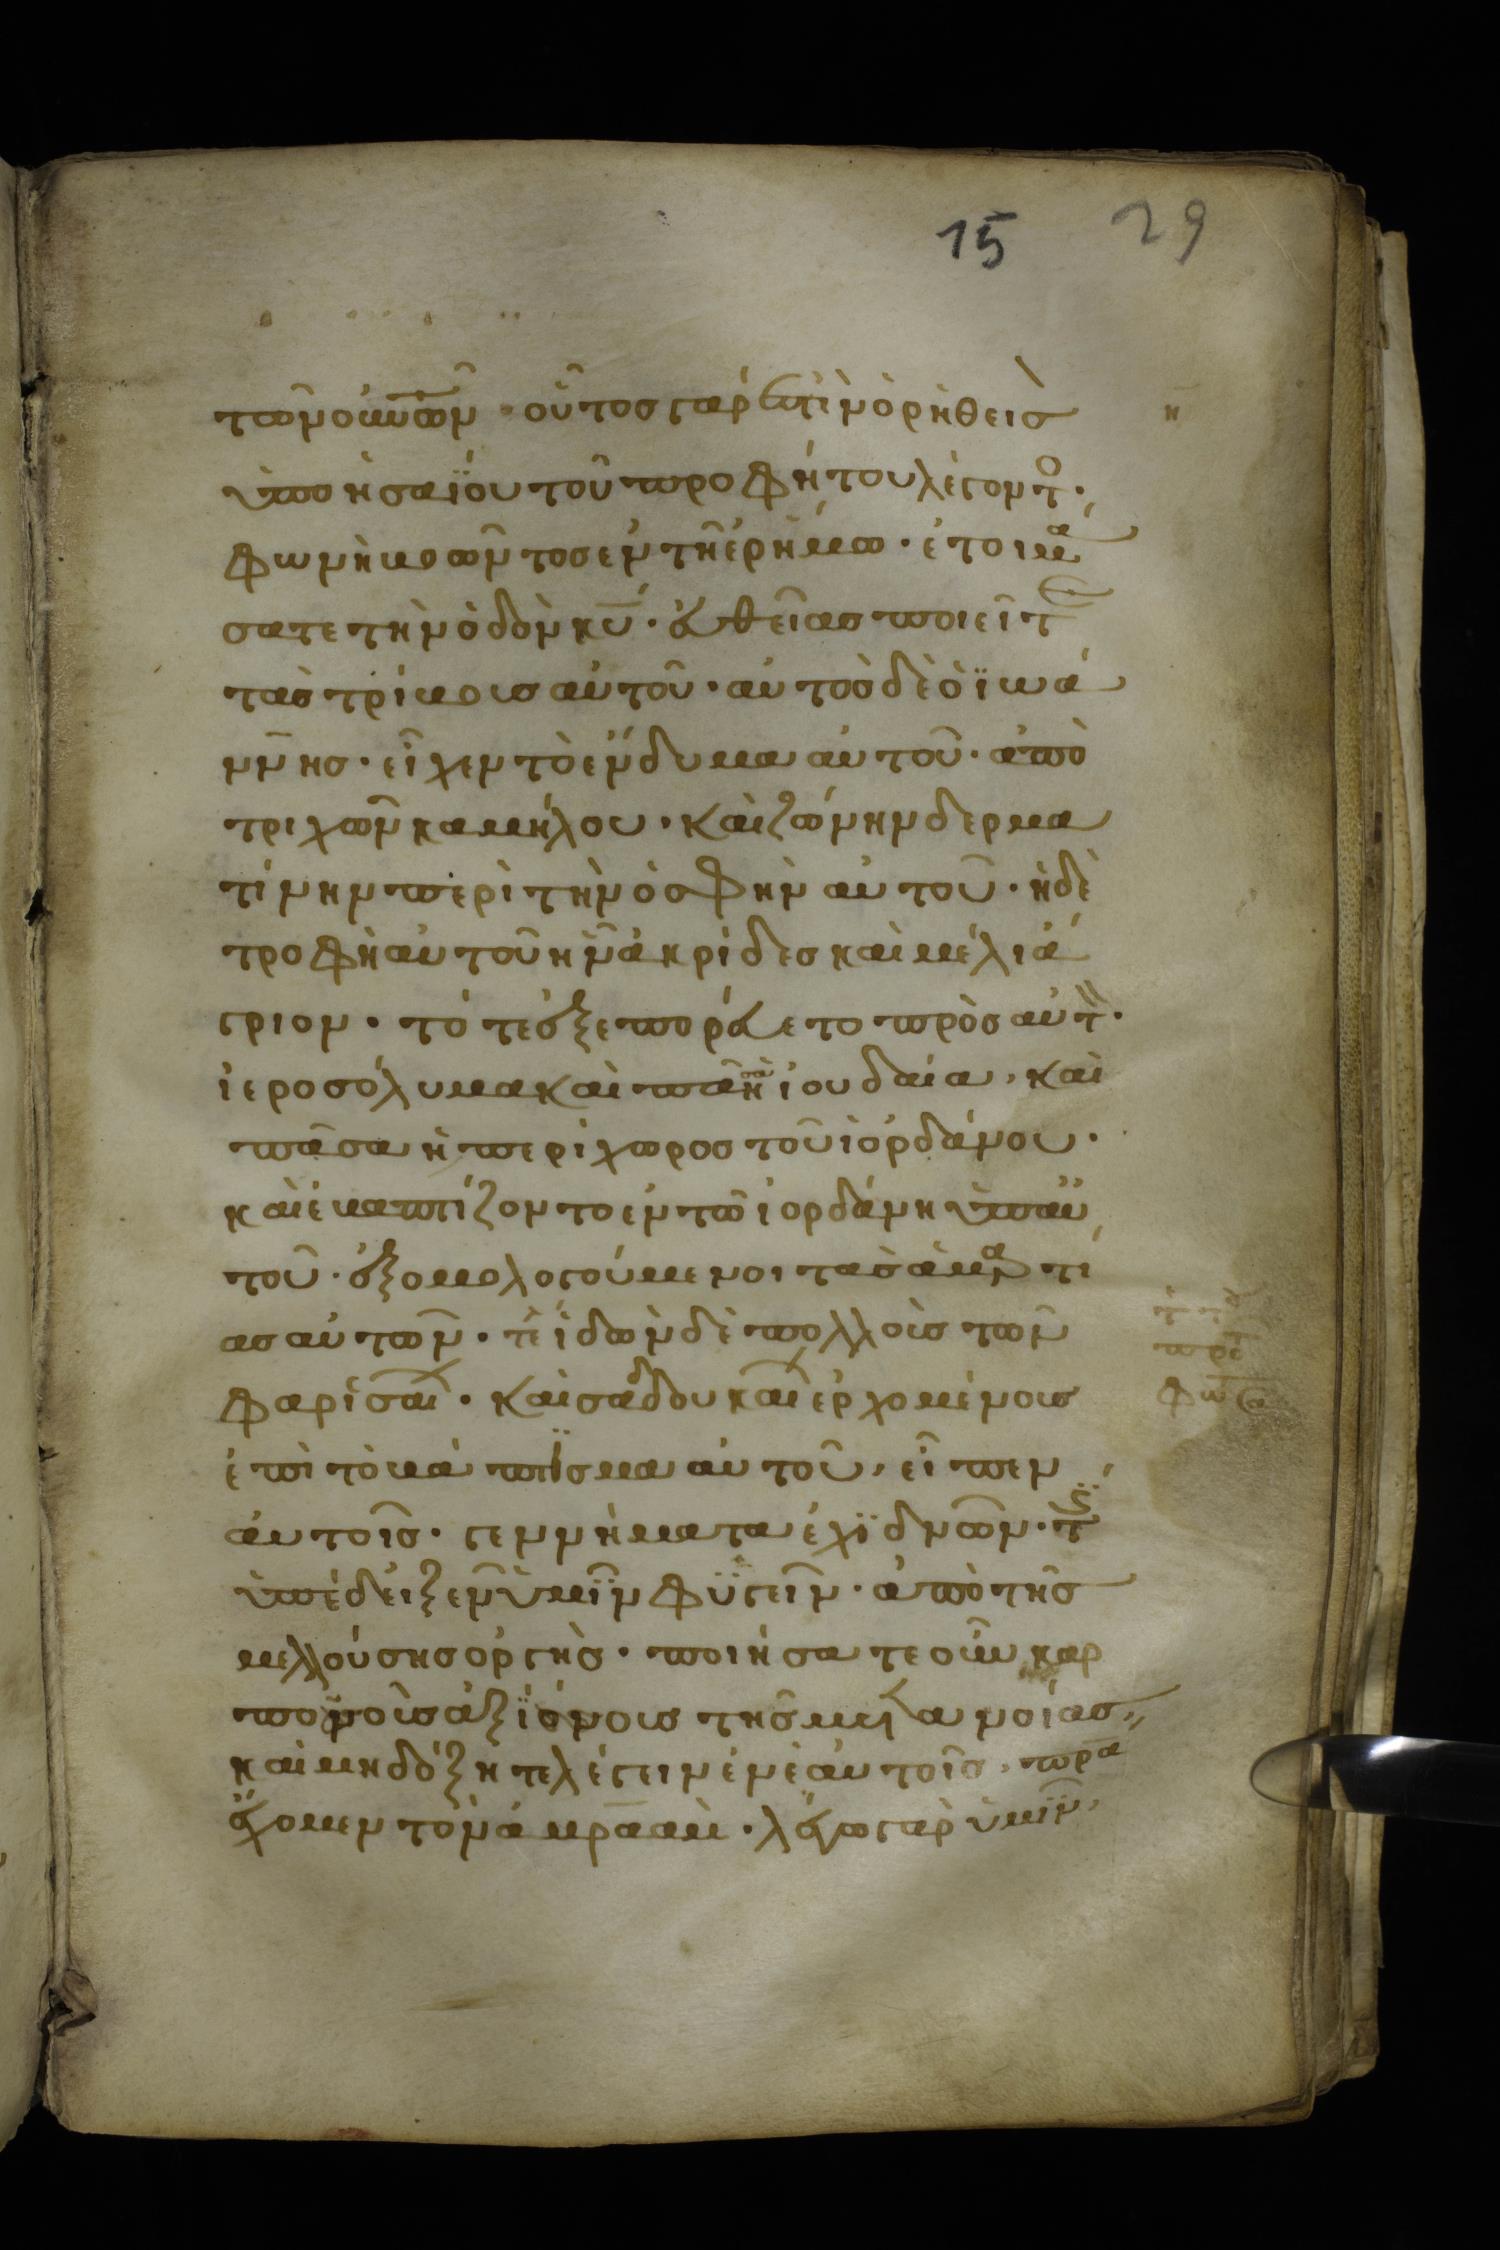 15 29
τῶν οὐνῶν · οὗτος γάρ ἐστὶν ὁ ρηθεὶς
ὑπο ησαΐου τοῦ προφήτου λέγοντο ·
φωνὴ βοῶντος ἐν τῆ ἐρήμω · ἑτοιμά
σατε τὴν ὁδὸν κυ̅ · ἐυθείας ποιεῖτε
τὰς τρίβους αὐτοῦ · αὐτὸς δὲ ὁ ϊωά
ννης · εἶχεν τὸ ἔνδυμα αὐτοῦ · ἀπὸ
τριχῶν καμήλου · καὶ ζώνην δερμα
τίνην περὶ τὴν ὀσφὴν αὐτοῦ · ἡ δὲ
τροφὴ αὐτοῦ ἦν ἀκρίδες καὶ μέλι ά
γριον · τότε ἐξεπορέυετο πρὸς αὐτ ·
ἱεροσόλυμα καὶ πᾶσα ἡ ἰουδαία, καὶ
πᾶσα ἡ περίχωρος τοῦ ἰορδάνου ·
καὶ ἐβαπτίζοντο ἐν τῶ ἰορδάνη ὑπ αυ
τοῦ · ἐξομολογούμενοι τὰς ἁμαρτί
ας αὐτῶν · ἰδὼν δὲ πολλοὺς τῶν
φαρισαί · καὶ σαδδουκαί ἐρχομένους
ἐπὶ τὸ βάπτϊσμα αὐτοῦ, εἶπεν
ἀυτοῖς · γεννήματα ἐχϊδνῶν · τίς
ὑπέδειξεν ὑμῖν φϋγεῖν · ἀπὸ τῆς
μελλούσης ὀργῆς · ποιήσατε οὖν καρ
ποὺς ἀξίους τῆς μετανοίας
καὶ μὴ δόξητε λέγειν ἐν ἑαυτοῖς · πρα
ἔχομεν τὸν ἁβραάμ · λέγω γὰρ ὑμῖν,